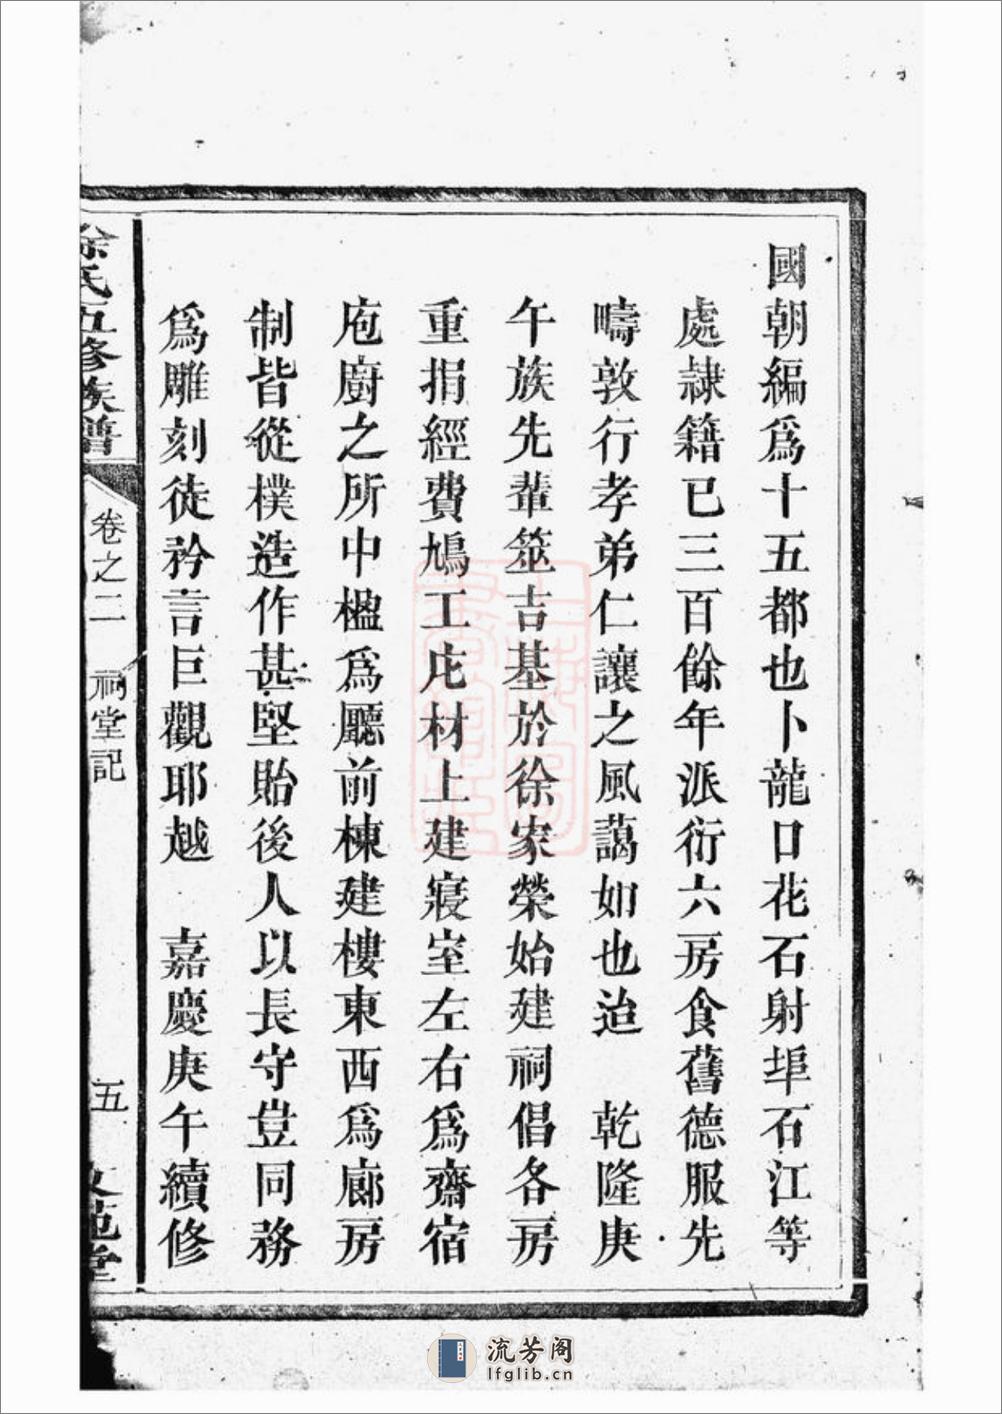 國朝編爲十五都也卜龍口花石射埠石江等
處隷籍已三百餘年派衍六房食舊德服先
疇敦行孝弟仁讓之風藹如也迨 乾隆庚
午族先輩筮吉基於徐家榮始建祠倡各房
重捐經費鳩工庀材上建寢室左右爲齋宿
庖廚之所中楹爲廳前棟建樓東西爲廊房
制皆從樸造作甚堅貽後人以長守豈同務
爲雕刻徒矜言巨觀耶越 嘉慶庚午續修
徐氏五修族譜
卷之二 祠堂記
五
堂
流芳阁
lfglib.cn